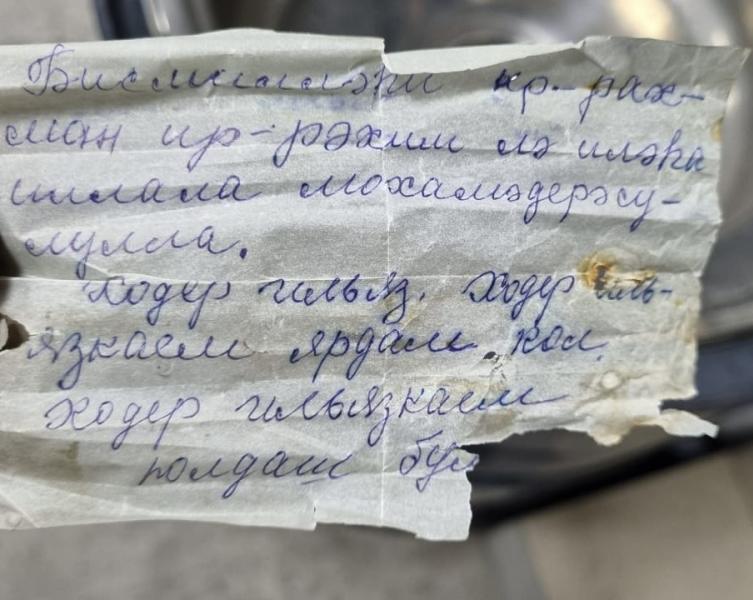 Бисмилләһи кр-рах-
ман ир-рәхим лә иләһә
иллала мохамәдерәсу-
лулла.
Ходер ильяз. Ходер иль-
язкаем ярдам кол.
Ходер ильязкаем
юлдаш бул